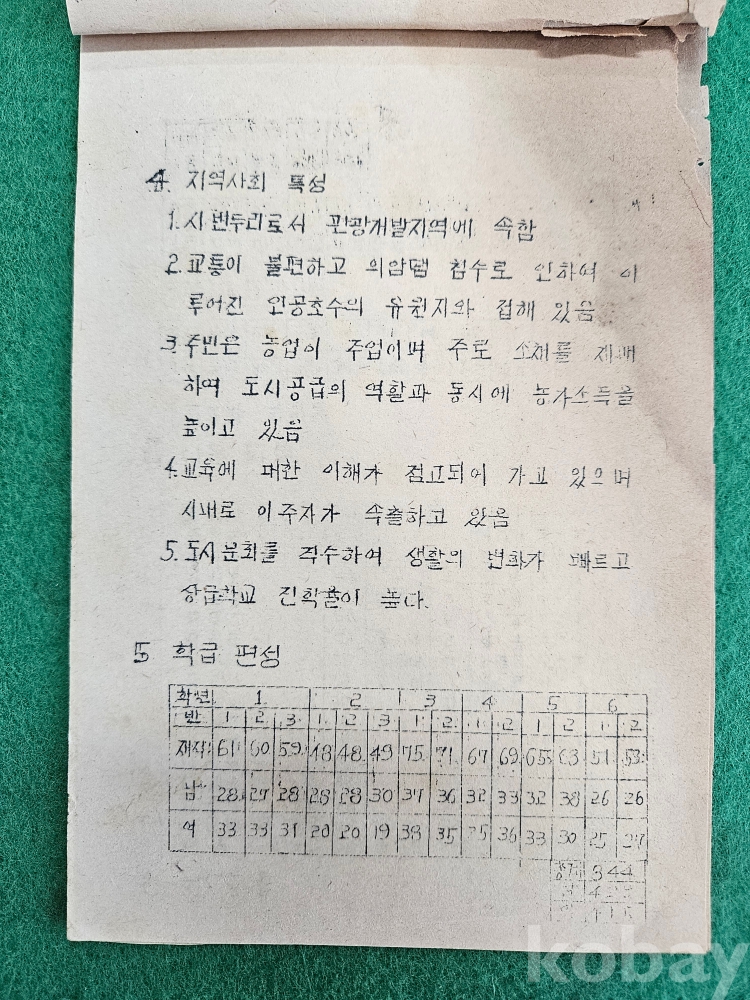 4. 지역사회 특성
1. 시 변두리로서 관광개발지역에 속함
2. 교통이 불편하고 의암댐 침수로 인하여 이
루어진 인공호수의 유원지와 접해 있음
3. 주민은 농업이 주업이며 주로 소채를 재배
하여 도시공급의 역활과 동시에 농가소득을
높이고 있음
4. 교육에 대한 이해가 점고되어 가고 있으며
시내로 이주자가 속출하고 있음
5. 도시문화를 직수하여 생활의 변화가 빠르고
상급학교 진학율이 높다.
5 학급 편성
학년 1 2 3 4 5 6
반 1 2 3 1 2 3 1 2 1 2 1 2 1 2
재적 61 60 59 48 48 49 75 71 67 69 65 51 53
남 28 27 28 28 28 30 37 36 32 33 32 38 26 26
여 33 33 31 20 20 19 38 35 36 33 30 25 27
844
kobay